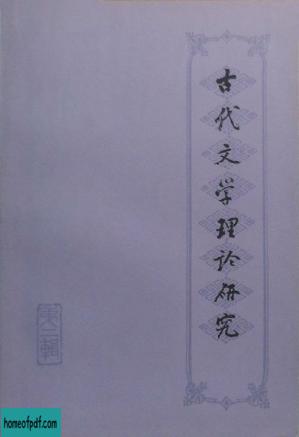 古代文学理论研究
第二輯
homeofpdf.com